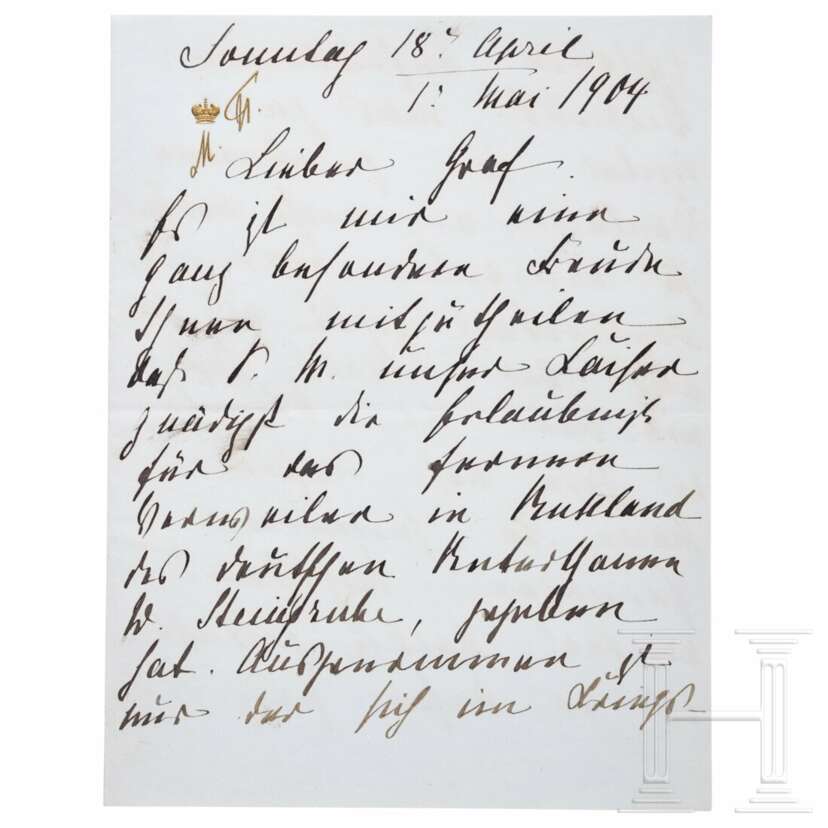 Sonntag 18. April
1. Mai 1904
M.
Lieber Graf.
Es ist mir eine
ganz besondere Freude
Ihnen mitzutheilen
daß S. M. unser Kaiser
gnädigst die Erlaubniß
für das fernere
Verweilen in Rußland
des deutschen Unterthanen
W. Steingrube, gegeben
hat. Ausgenommen ist
nur der sich im Kriegs-
H